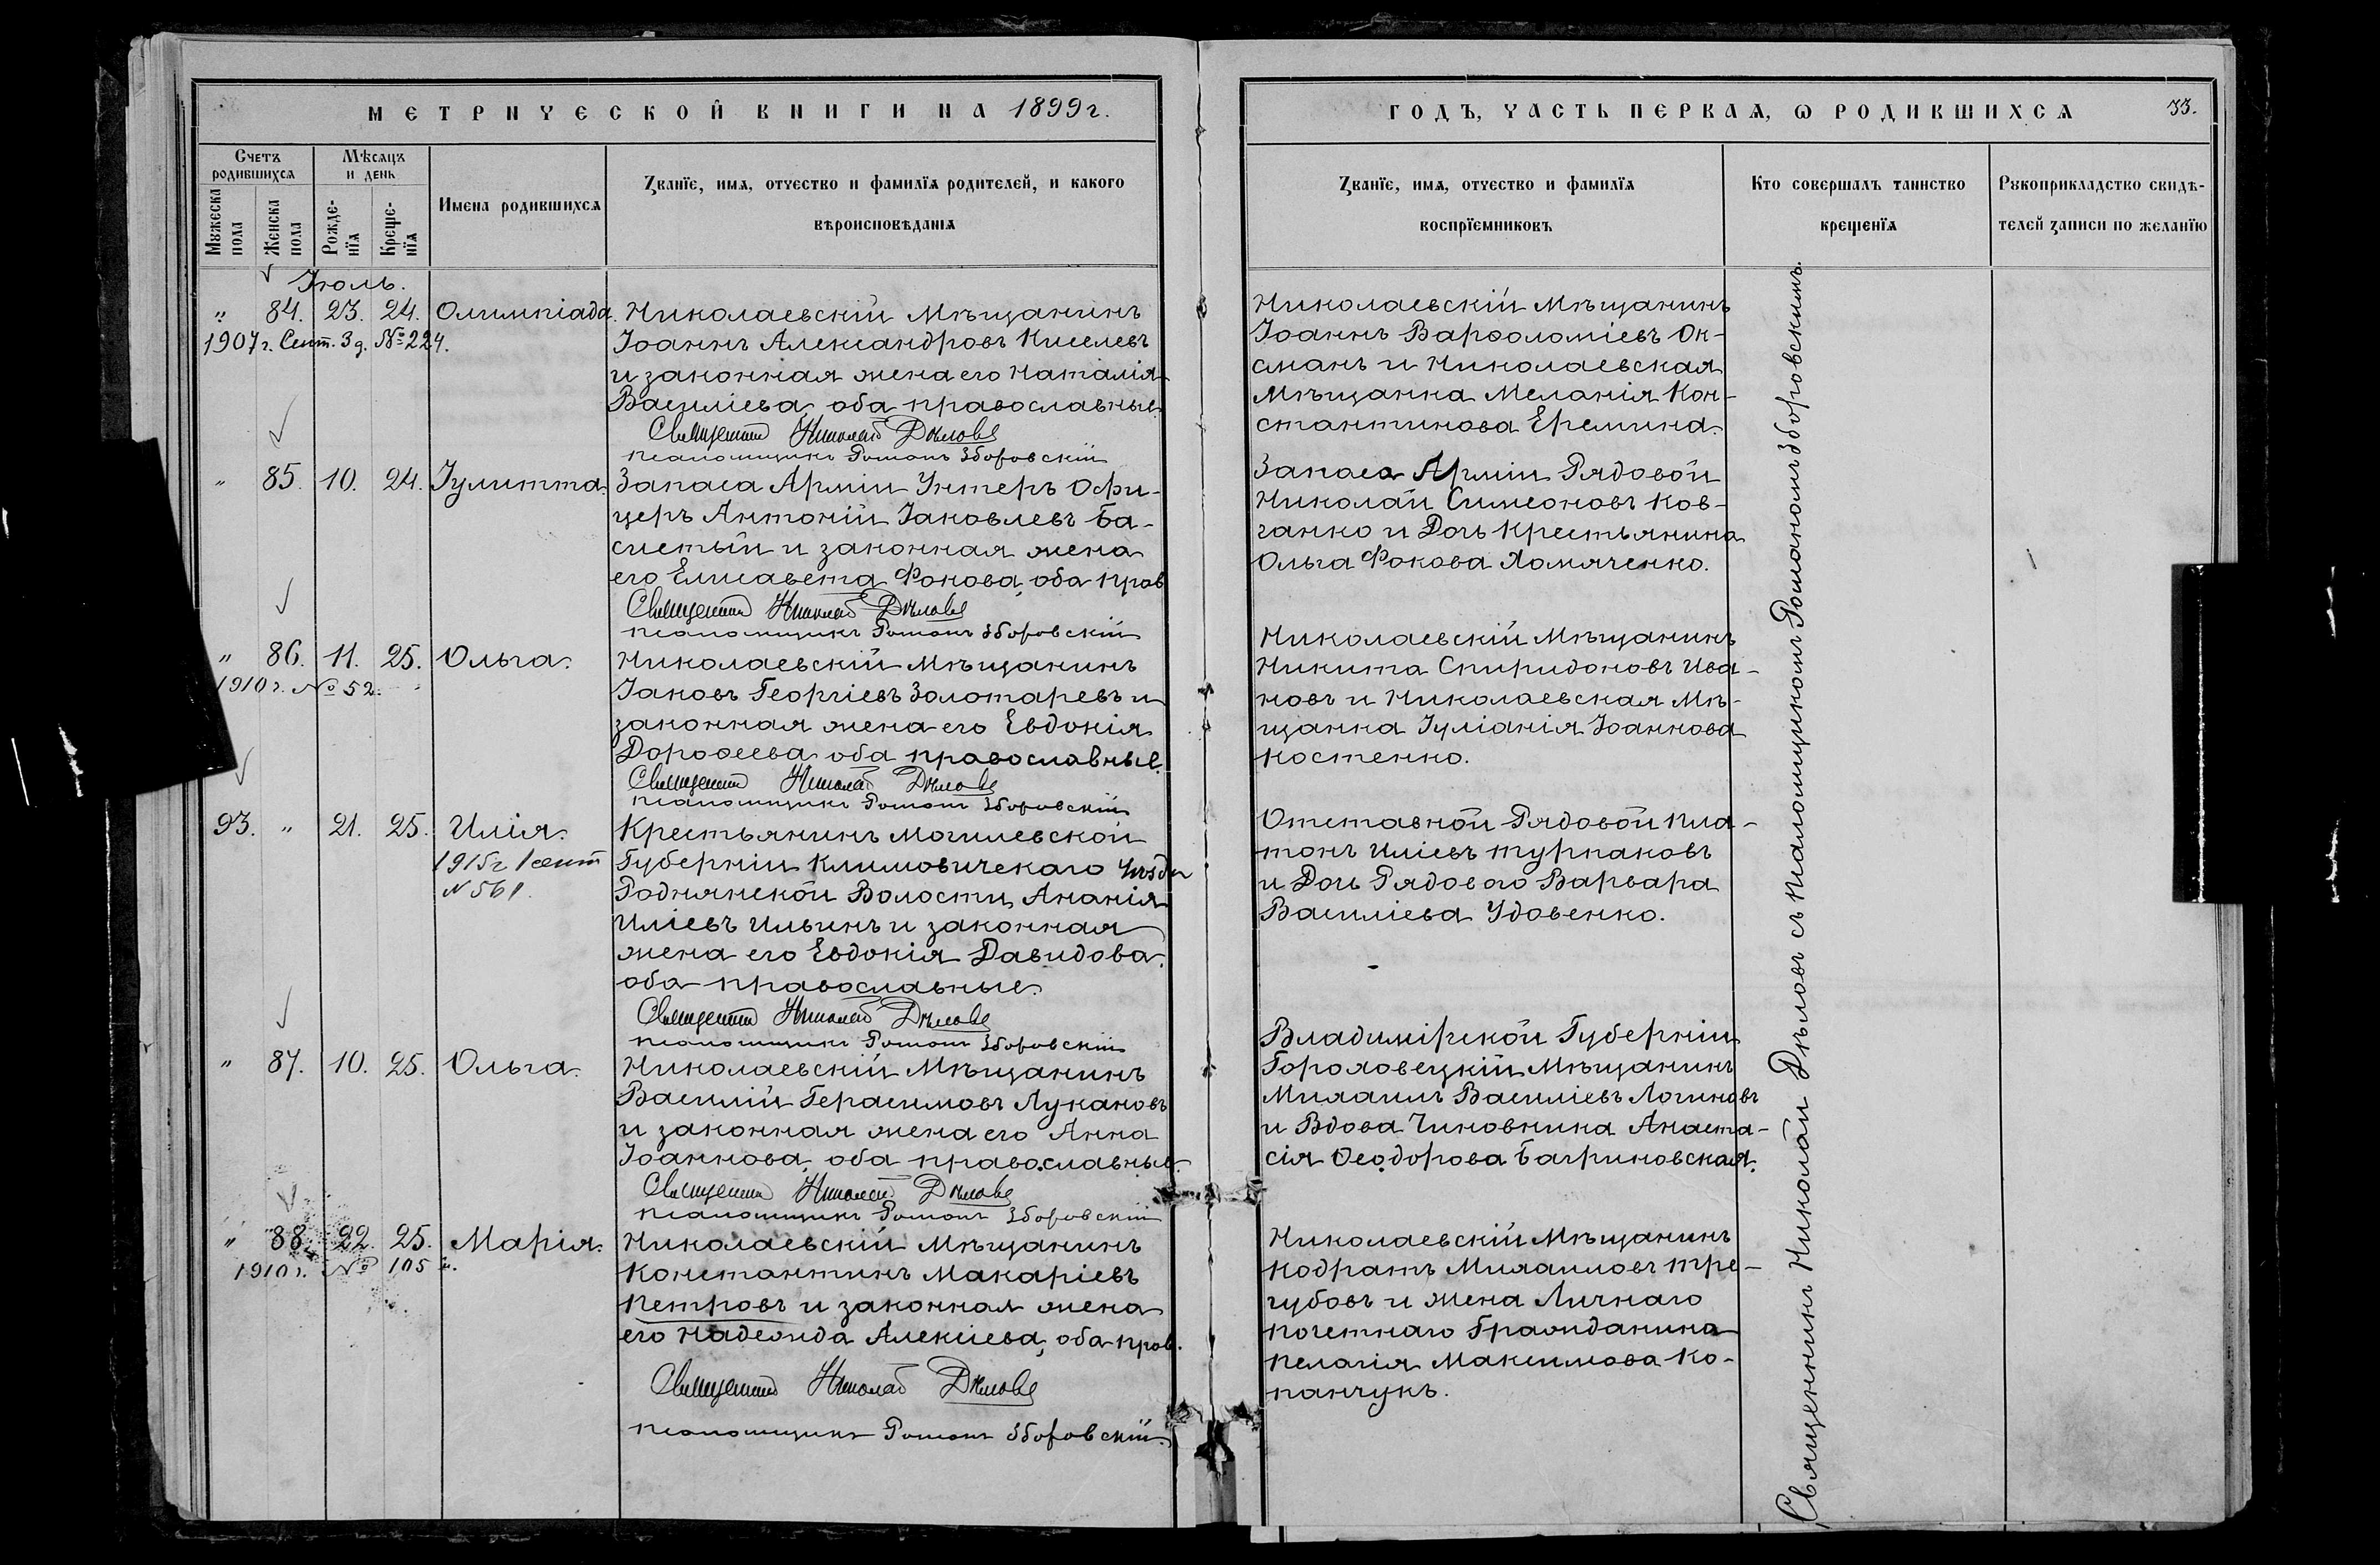 МЕТРИЧЕСКОЙ КНИГИ НА 1899 г.
Счетъ родившихся
Мужеска пола
Женска пола
Мѣсяцъ и день
Рожденїя
Крещенїя
Имена родившихся
Званїе, имя, отчество и фамилїя родителей, и какого
вѣроисповѣданія
Іюль.
" 84. 23. 24. Олимпіада. Николаевскій Мѣщанинъ
1907 г. Сент. 3 д. № 224.
Іоаннъ Александровъ Киселевъ
и законная жена его Наталія
Василіева, оба православные.
Священникъ Николай Дѣловъ
Псаломщикъ Романъ Зборовскій
" 85. 10. 24. Іулитта. Запаса Арміи Унтеръ Офи-
церъ Антоній Іаковлевъ Ба-
систый и законная жена
его Елисавета Фокова, оба прав
Священникъ Николай Дѣловъ
Псаломщикъ Романъ Зборовскій
" 86. 11. 25. Ольга. Николаевскій Мѣщанинъ
1910 г. № 52.
Іаковъ Георгіевъ Золотаревъ и
законная жена его Евдокія
Дорофеева, оба православные.
Священникъ Николай Дѣловъ
Псаломщикъ Романъ Зборовскій
93. " 21. 25. Илія. Крестьянинъ Могилевской
1915 г. 1 сент
№ 561.
Губерніи Климовичскаго Уѣзда
Роднянской Волости, Ананія
Иліевъ Ильинъ и законная
жена его Евдокія Давидова,
оба православные.
Священникъ Николай Дѣловъ
Псаломщикъ Романъ Зборовскій
" 87. 10. 25. Ольга. Николаевскій Мѣщанинъ
Василій Герасимовъ Лукановъ
и законная жена его Анна
Іоаннова, оба православные.
Священникъ Николай Дѣловъ
Псаломщикъ Романъ Зборовскій
" 88. 22. 25. Марія. Николаевскій Мѣщанинъ
1910 г. № 105
Константинъ Макаріевъ
Петровъ и законная жена
его Надежда Алексіева, оба прав.
Священникъ Николай Дѣловъ
Псаломщикъ Романъ Зборовскій.
ГОДЪ, ЧАСТЬ ПЕРВАЯ, Ѡ РОДИВШИХСЯ 33.
Званїе, имя, отчество и фамилїя
воспрїемниковъ
Кто совершалъ таинство
крещенїя
Рукоприкладство свидѣ-
телей записи по желанїю
Николаевскій Мѣщанинъ
Іоаннъ Варфоломіевъ Ок-
сманъ и Николаевская
Мѣщанка Меланія Кон-
стантинова Еремина.
Запаса Арміи Рядовой
Николай Симеоновъ Ков-
ганко и Дочь Крестьянина
Ольга Фокова Хомяченко.
Николаевскій Мѣщанинъ
Никита Спиридоновъ Ива-
новъ и Николаевская Мѣ-
щанка Іуліанія Іоаннова
Костенко.
Отставной Рядовой Пла-
тонъ Иліевъ Турпаковъ
и Дочь Рядового Варвара
Василіева Удовенко.
Владимірской Губерніи
Гороховецкій Мѣщанинъ
Михаилъ Василіевъ Логиновъ
и Вдова Чиновника Анаста-
сія Ѳеодорова Багриновская.
Николаевскій Мѣщанинъ
Кодратъ Михаиловъ Тре-
губовъ и жена Личнаго
почетнаго Гражданина
Пелагія Максимова Ко-
панчукъ.
Священникъ Николай Дѣловъ съ Псаломщикомъ Романомъ Зборовскимъ.